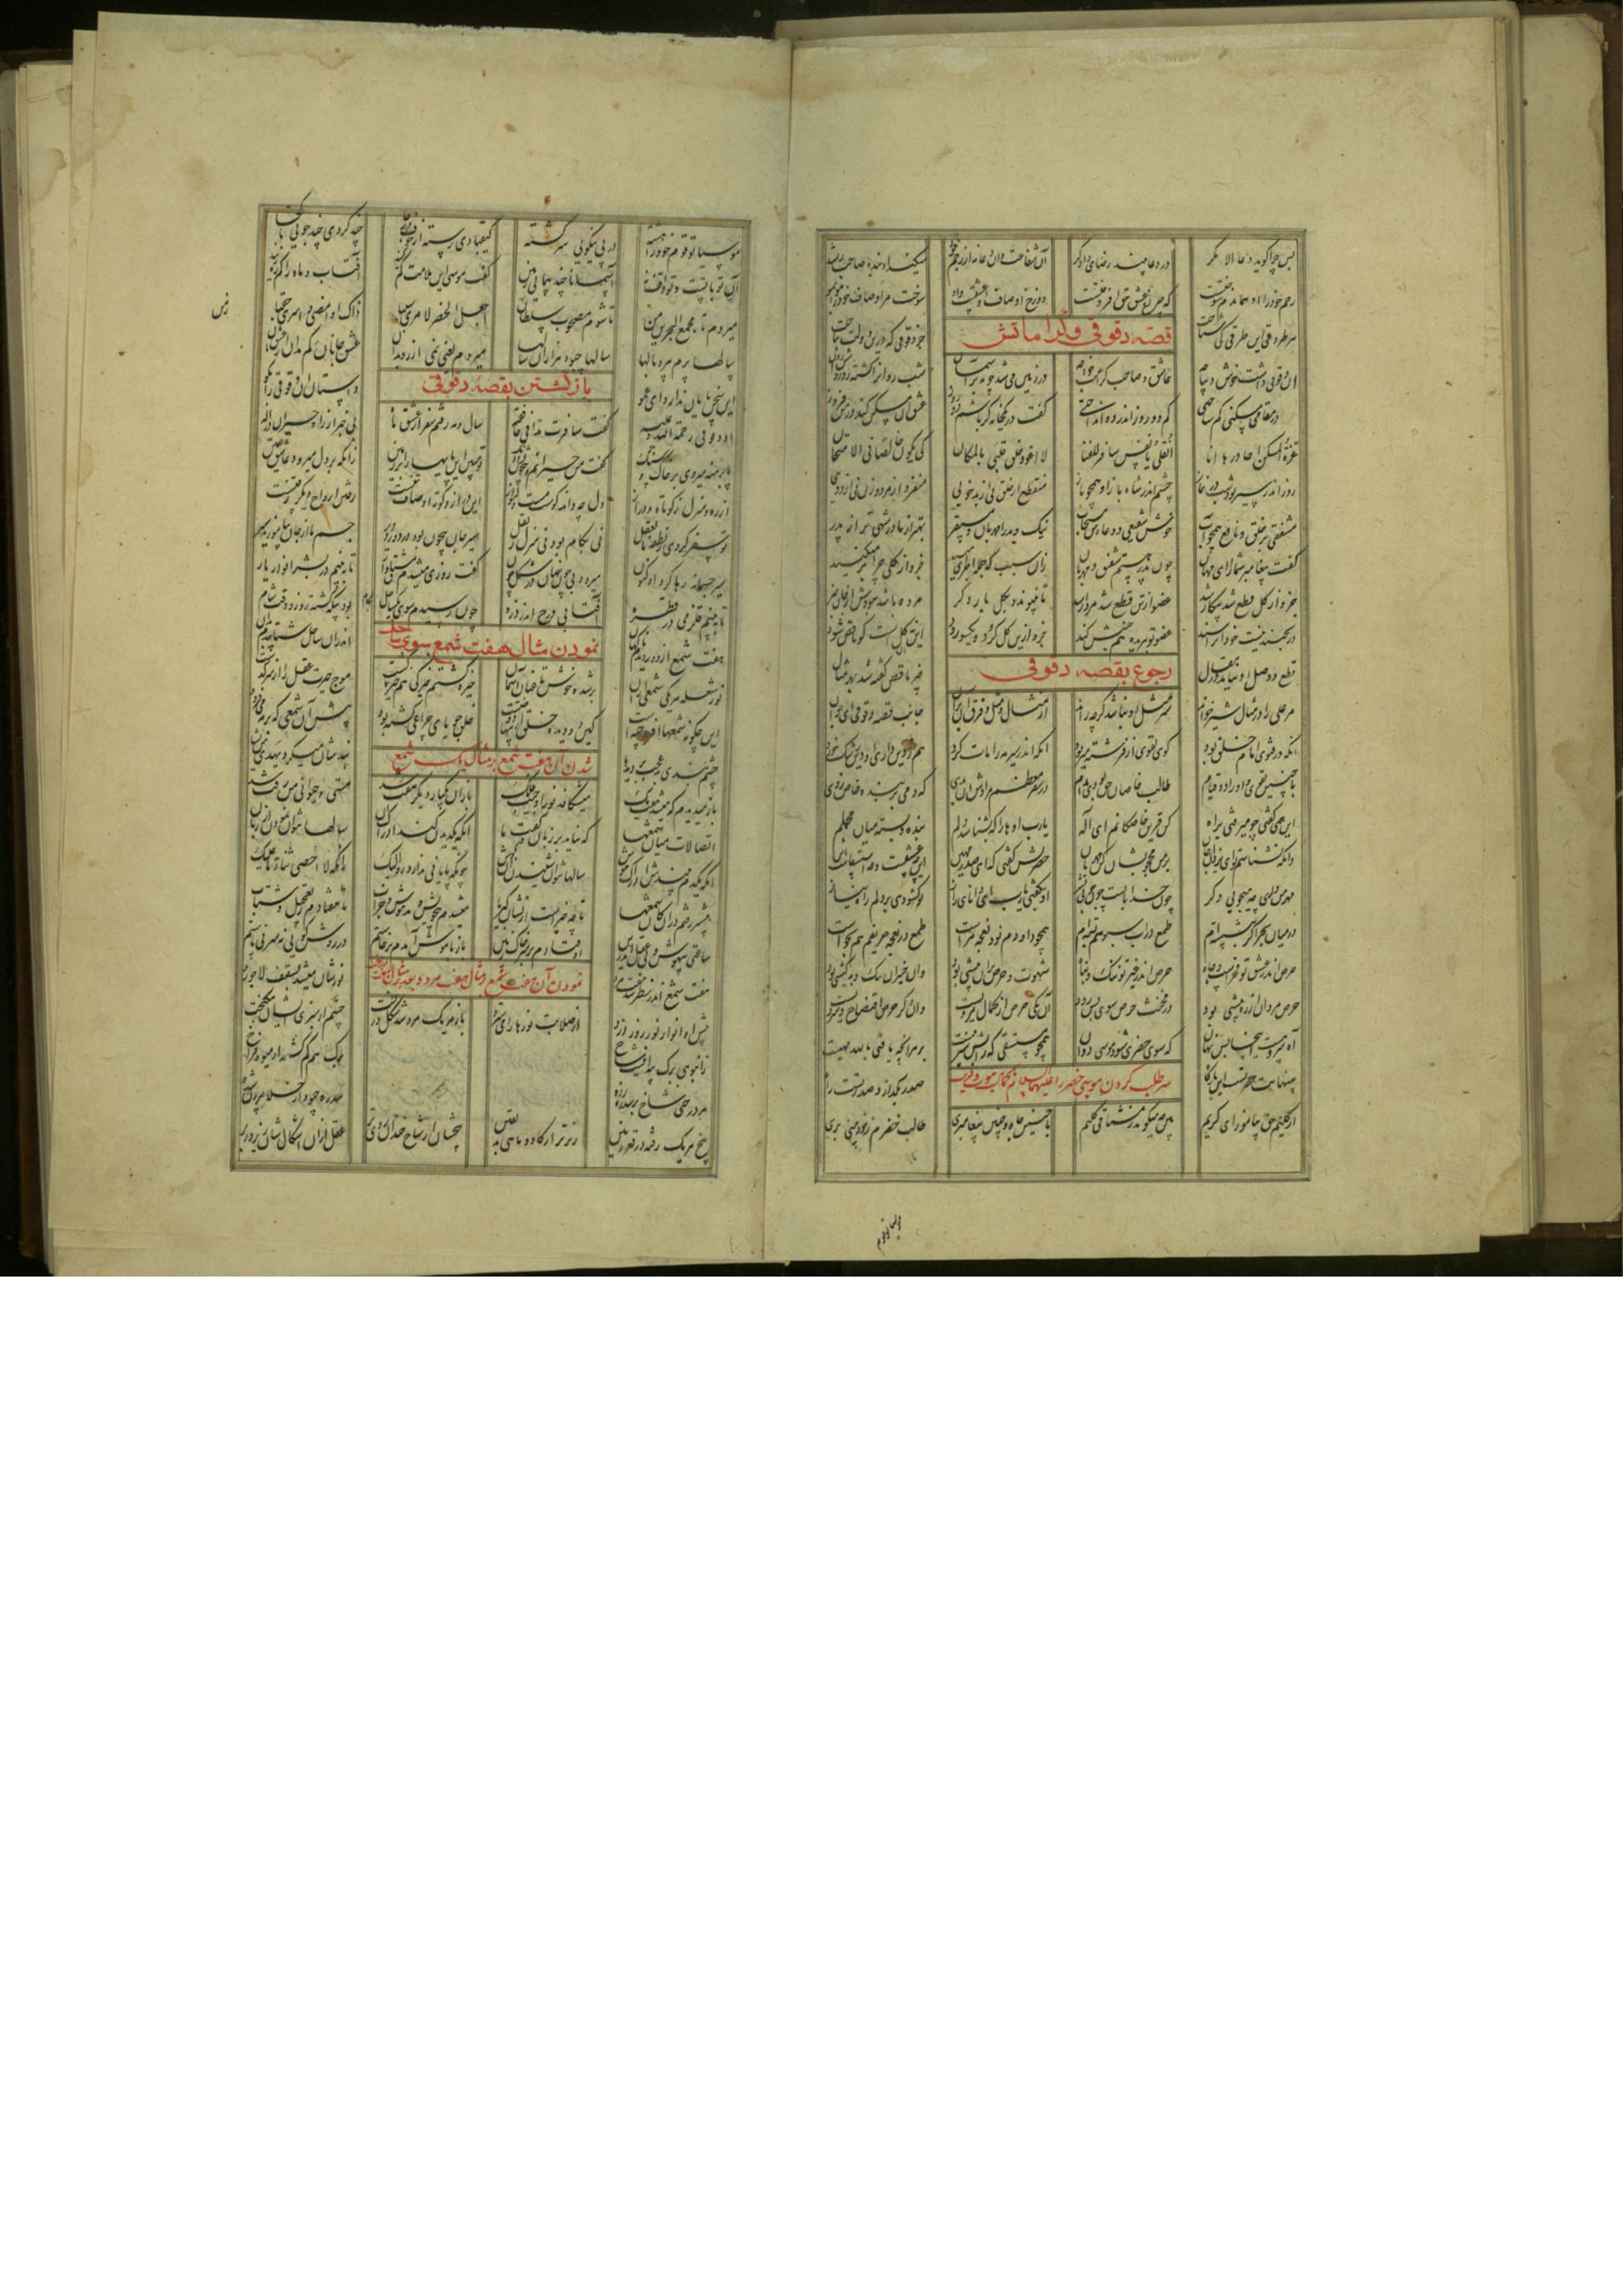 پس چرا گوید دعا الا مگر در دعا بیند رضای دادگر آن شفاعت وان دعا نه از رحم خود میکند آن بنده صاحب رشد
رحم خود را او همان دم سوختست که چراغ عشق حق افروختست دوزخ اوصاف او عشقست واو سوخت مر اوصاف خود را مو بمو
هر طروقی این طروقی کی شناخت جز دقوقی که درین دولت بتاخت
قصه دقوقی و کراماتش
آن دقوقی داشت خوش دیباچه عاشق و صاحب کرامت خواجه در زمین می شد چو مه بر آسمان شب روانرا گشته زو روشن روان
در مقامی مسکنی کم ساختی کم دو روز اندر دهی انداختی گفت در یکخانه گر باشم دو روز عشق آن مسکن کند در من فروز
غرة المسکن احاذرها انا انقلی یا نفس سافر للغنا لا اعود خلق قلبی بالمکان کی یکون خالصا فی الامتحان
روز اندر سیر بد شب در نماز چشم اندر شاه باز او همچو باز منقطع از خلق نی از بد خویی منفرد از مرد و زن نی از دویی
مشفقی بر خلق و نافع همچو آب خوش شفیعی و دعااش مستجاب نیک و بد را مهربان و مستقر بهتر از مادر شهی تر از پدر
گفت پیغامبر شما را ای مهان چون پدر هستم شفیق و مهربان زان سبب که جمله اجزای منید جزو را از کل چرا بر میکنید
جزو از کل قطع شد بیکار شد عضو از تن قطع شد مردار شد تا نپیوندد بکل بار دگر مرده باشد نبودش از جان خبر
ور بجنبد نیست خود او را سند عضو نو ببریده هم جنبش کند جزو ازین کل گر برد یکسو رود این نه آن کل است کو ناقص شود
قطع و وصل او نیاید در مقال چیز ناقص گفته شد بهر مثال
رجوع بقصه دقوقی
مر علی را در مثال شیر خواند شیر مثل او نباشد گرچه راند از مثال و مثل و فرق آن بران جانب قصه دقوقی ای جوان
آنکه در فتوی امام خلق بود گوی تقوی از فرشته میربود آنکه اندر سیر مه را مات کرد هم ز دین داری او دین رشک خورد
با چنین تقوی و اوراد و قیام طالب خاصان حق بودی مدام در سفر معظم مرادش آن بدی که دمی بر بنده خاص زدی
این همی گفتی چو میرفتی براه کن قرین خاصگانم ای اله یارب آنها را که بشناسد دلم بنده و بسته میان مجملم
وانکه نشناسم تو ای یزدان جان بر من محجوبشان کن مهربان حضرتش گفتی که ای صدر مهین این چه عشقست و چه استسقاست این
مهر من داری چه میجویی دگر چون خدا با تست چون جویی بشر او بگفتی یارب ای دانای راز تو گشودی در دلم راه نیاز
درمیان بحر اگر بنشسته ام طمع در آب سبو هم بسته ام همچو داودم نود نعجه مراست طمع در نعجه حریفم هم بخاست
حرص اندر عشق تو فخرست و جاه حرص اندر غیر تو ننگ و تباه شهوت و حرص نران پیشی بود وان حیزان ننگ و بدکیشی بود
حرص مردان از ره پیشی بود در مخنث حرص سوی پس رود آن یکی حرص از کمال مردیست وان دگر حرص افتضاح و سردیست
آه سریست اینجا بس نهان که سوی خضری شود موسی دوان همچو مستسقی کز آبش سیر نیست بر هر آنچه یافتی بالله مه ایست
بینهایت حضرتست این بارگاه صدر بگذار و صدر تست راه
سر طلب کردن موسی خضر را علیهما السلام با کمال نبوت و قربت
از کلیم حق بیاموز ای کریم بین چه میگوید ز مشتاقی کلیم با چنین جاه و چنین پیغامبری طالب خضرم ز خودبینی بری
موسیا تو قوم
موسیا تو قوم خود را هشته در پی نیکویی سرگشته کیقبادی رسته از خوف و رجا چند گردی چند جویی تا کجا
آن تو با تست و تو واقف برین آسمانا چند پیمایی زمین گفت موسی این ملامت کم کنید آفتاب و ماه را کم ره زنید
میروم تا مجمع البحرین من تا شوم مصحوب سلطان زمن اجعل الخضر لامری سببا ذاک او امضی و اسری حقبا
سالها پرم بپر و بالها سالها چبود هزاران سالها میروم یعنی نمی ارزد بدان عشق جانان کم مدان از عشق نان
این سخن پایان ندارد ای عمو داستان آن دقوقی را بگو
بازگشتن بقصه دقوقی
آن دقوقی رحمة الله علیه گفت سافرت مدا فی خافقیه سال و مه رفتم سفر از عشق ماه بی خبر از راه حیران در اله
پا برهنه میروی بر خار و سنگ گفت من حیرانم و بیخویش و دنگ تو مبین این پایها را بر زمین زانکه بر دل میرود عاشق یقین
از ره و منزل ز کوتاه و دراز دل چه داند کوست مست دلنواز این دراز و کوته اوصاف تنست رفتن ارواح دیگر رفتنست
تو سفر کردی ز نطفه تا بعقل نی بگامی بود نی منزل نه نقل سیر جان بیچون بود در دور و دیر جسم ما از جان بیاموزید سیر
سیر جسمانه رها کرد او کنون میرود بی چون نهان در شکل چون گفت روزی میشدم مشتاق وار تا ببینم در بشر انوار یار
تا ببینم قلزمی در قطره آفتابی درج اندر ذره چون رسیدم سوی یکساحل بگام بود بیگه گشته روز و وقت شام
نمودن مثال هفت شمع سوی ساحل
هفت شمع از دور دیدم ناگهان اندران ساحل شتابیدم بدان
نور شعله هر یکی شمعی ازان برشده خوش تا عنان آسمان خیره گشتم خیرگی هم خیره گشت موج حیرت عقل را از سر گذشت
این چگونه شمعها افروختست کین دو دیده خلق ازینها دوختست خلق جویای چراغی گشته بود پیش آن شمعی که بر مه میفزود
چشم بندی بد عجب بر دیدها بندشان میکرد یهدی من یشا
شدن آن هفت شمع بر مثال یک شمع
باز میدیدم که میشد هفت یک میشکافد نور او جیب فلک باز آن یکبار دیگر هفت شد مستی و حیرانی من زفت شد
اتصالات میان شمعها که نیاید بر زبان و گفت ما آنکه یکدیدن کند ادراک آن سالها نتوان نمودن از زبان
آنکه یکدم بیندش ادراک هوش سالها نتوان شنودن آن بگوش چونکه پایانی ندارد رو الیک زانکه لا احصی ثناء ما علیک
پیشتر رفتم دوان کان شمعها تا چه چیزست از نشان کبریا میشدم بیخویش و مدهوش و خراب تا بیفتادم ز تعجیل و شتاب
ساعتی بیهوش و بی عقل اندرین اوفتادم بر سر خاک زمین باز با هوش آمدم برخاستم در روش گویی نه سر نه پاستم
نمودن آن هفت شمع مثال هفت مرد و بعد مثال هفت درخت
هفت شمع اندر نظر شد هفت مرد نورشان میشد بسقف لاجورد
پیش آن انوار نور روز درد از صلابت نورها را می سترد باز هر یک مرد شد شکل درخت چشمم از سبزی ایشان نیکبخت
ز انبوهی برگ پیدا نیست شاخ برگ هم گم گشته از میوه فراخ
هر درختی شاخ بر سدره زده سدره چبود از خلا بیرون شده
بیخ هر یک رفته در قعر زمین زیرتر از گاو و ماهی بد یقین بیخشان از شاخ خندان روی تر عقل ازان اشکال شان زیر و زبر